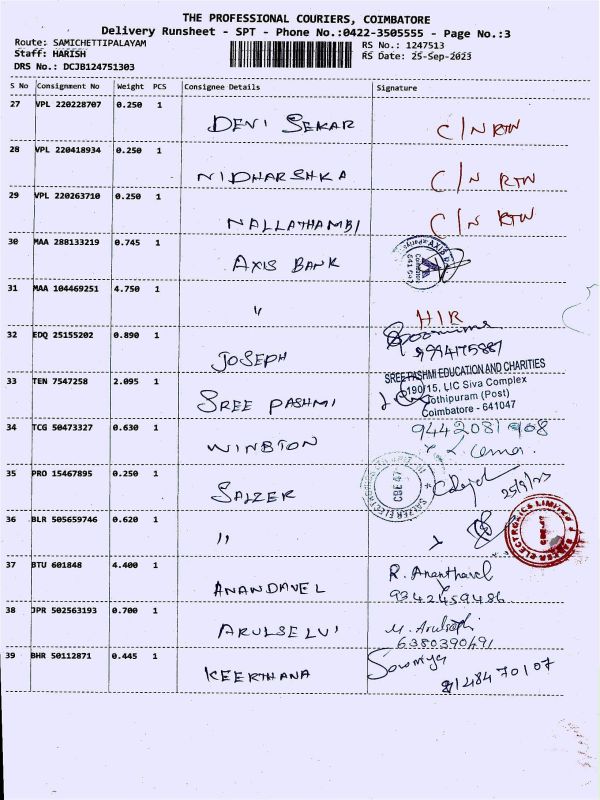 THE PROFESSIONAL COURIERS, COIMBATORE
Delivery Runsheet - SPT - Phone No.:0422-3505555 - Page No.:3
Route: SAMICHETTIPALAYAM
RS No.: 1247513
Staff: HARISH
RS Date: 25-Sep-2023
DRS No.: DCJB124751303
S No Consignment No Weight PCS Consignee Details Signature
27 VPL 220228707 0.250 1
DEVI SEKAR C/N RTN
28 VPL 220418934 0.250 1
NIDHARSHKA C/N RTN
29 VPL 220263710 0.250 1
NALLATHAMBI C/N RTN
30 MAA 288133219 0.745 1
AXIS BANK
31 MAA 104469251 4.750 1
" HIR
32 EDQ 25155202 0.890 1
JOSEPH 9994175887
33 TEN 7547258 2.095 1
SREE PASHMI
SREE PASHMI EDUCATION AND CHARITIES
190/15, LIC Siva Complex
Jothipuram (Post)
Coimbatore - 641047
34 TCG 50473327 0.630 1
WINBTON
35 PRO 15467895 0.250 1
SALZER
CBE 47
25/9/23
36 BLR 505659746 0.620 1
"
SALZER ELECTRONICS LIMITED
CBE-47
37 BTU 601848 4.400 1
ANANDAVEL R. Ananthavel
9342459486
38 JPR 502563193 0.700 1
ARULSELVI
6380390691
39 BHR 50112871 0.445 1
KEERTHANA Sowmiya
8148470107